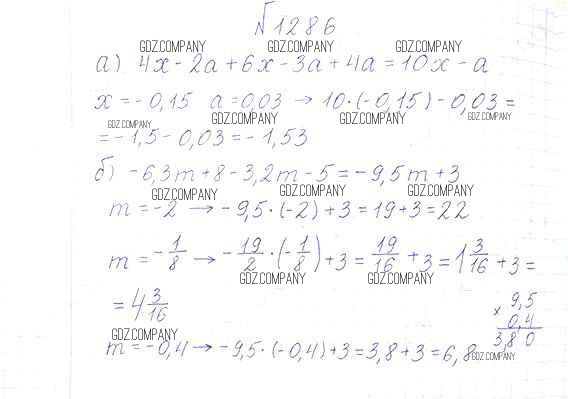 №1286
GDZ.COMPANY GDZ.COMPANY GDZ.COMPANY
а) 4x - 2a + 6x - 3a + 4a = 10x - a
x = - 0,15 a = 0,03 → 10·(-0,15) - 0,03 =
GDZ.COMPANY GDZ.COMPANY GDZ.COMPANY GDZ.COMPANY
= - 1,5 - 0,03 = - 1,53
б) -6,3m + 8 - 3,2m - 5 = - 9,5m + 3
GDZ.COMPANY GDZ.COMPANY GDZ.COMPANY
m = -2 → - 9,5·(-2) + 3 = 19 + 3 = 22
m = - 1/8 → - 19/2 · (- 1/8) + 3 = 19/16 + 3 = 1 3/16 + 3 =
GDZ.COMPANY GDZ.COMPANY
= 4 3/16
9,5
× 0,4
3,80
GDZ.COMPANY
m = -0,4 → - 9,5·(-0,4) + 3 = 3,8 + 3 = 6,8
GDZ.COMPANY